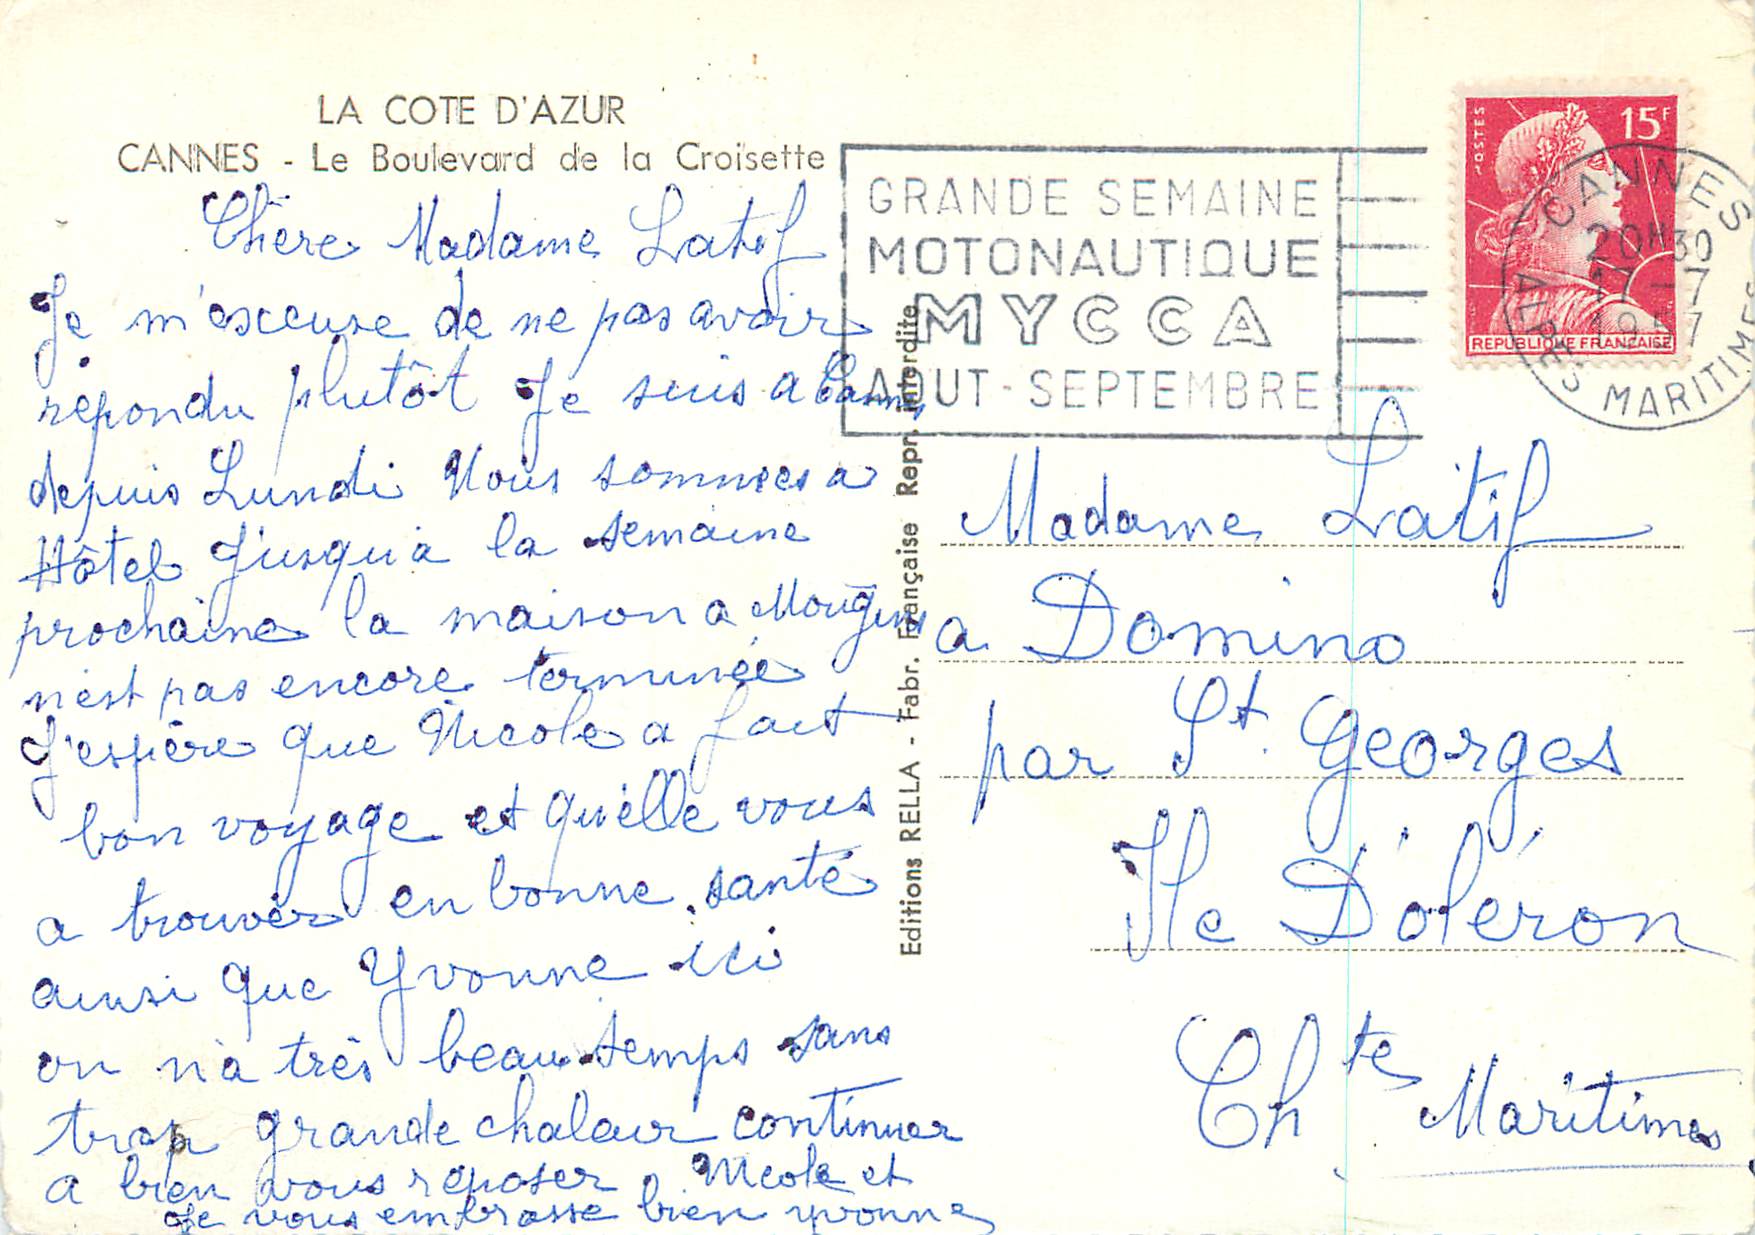 LA COTE D'AZUR
CANNES - Le Boulevard de la Croisette
Chère Madame Latif
Je m'esceuse de ne pas avoir
repondu plutôt Je suis a Cannes
depuis Lundi Nous sommes a
Hôtel Jusqu'a la semaine
prochaine la maison a Mougins
n'est pas encore terminée
J'espère que Nicole a fait
bon voyage et qu'elle vous
a trouver en bonne santé
ainsi que Yvonne ici
on n'a très beau temps sans
trop grande chaleur continuer
a bien vous reposer Nicole et
Je vous embrasse bien yvonne
Editions RELLA - Fabr. Française Repr. Interdite
GRANDE SEMAINE
MOTONAUTIQUE
MYCCA
AOUT - SEPTEMBRE
POSTES
15F
REPUBLIQUE FRANÇAISE
CANNES
20H30
17-7
1957
ALPES MARITIMES
Madame Latif
a Domino
par St. Georges
Ile D'oléron
Chte Maritimes